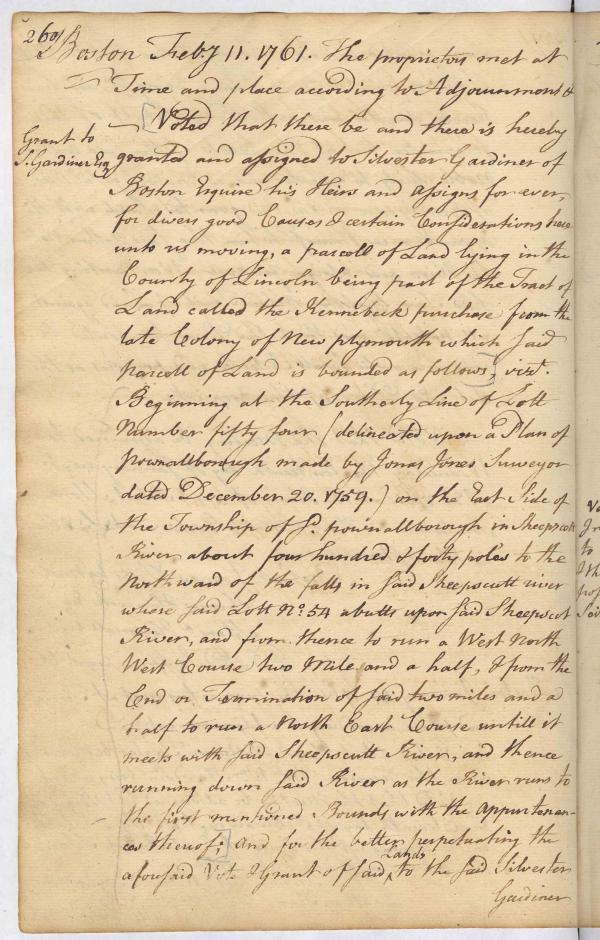 260
Boston Feby 11. 1761. The proprietors met at
Time and place according to Adjournment &
Grant to
S. Gardiner Esq
Voted that there be and there is hereby
granted and assigned to Silvester Gardiner of
Boston Esquire his Heirs and assigns for ever,
for divers good Causes & certain Considerations here
unto us moving, a parcell of Land lying in the
County of Lincoln being part of the Tract of
Land called the Kennebeck purchase from the
late Colony of New plymouth which said
parcell of Land is bounded as follows, vizt.
Beginning at the Southerly Line of Lott
Number fifty four (delineated upon a Plan of
pownallborough made by Jonas Jones Surveyor
dated December 20. 1759.) on the East Side of
the Township of sd. pownallborough in Sheepscott
River about four hundred & forty poles to the
Northward of the falls in said Sheepscutt river
where said Lott No. 54 abutts upon said Sheepscot
River, and from thence to run a West North
West Course two Mile and a half, & from the
End or Termination of said two miles and a
half to run a North East Course untill it
meets with said Sheepscutt River, and thence
running down said River as the River runs to
the first mentioned Bounds with the Appurtenan-
ces thereof; and for the better perpetuating the
aforesaid Vote & Grant of said Lands to the said Silvester
Gardiner